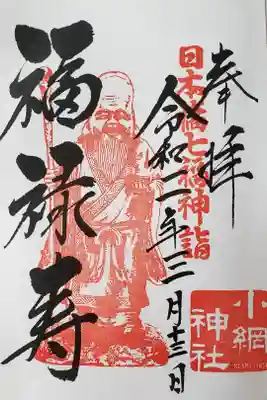 奉拝
日本橋七福神詣
令和二年三月十三日
福禄寿
小網
神社